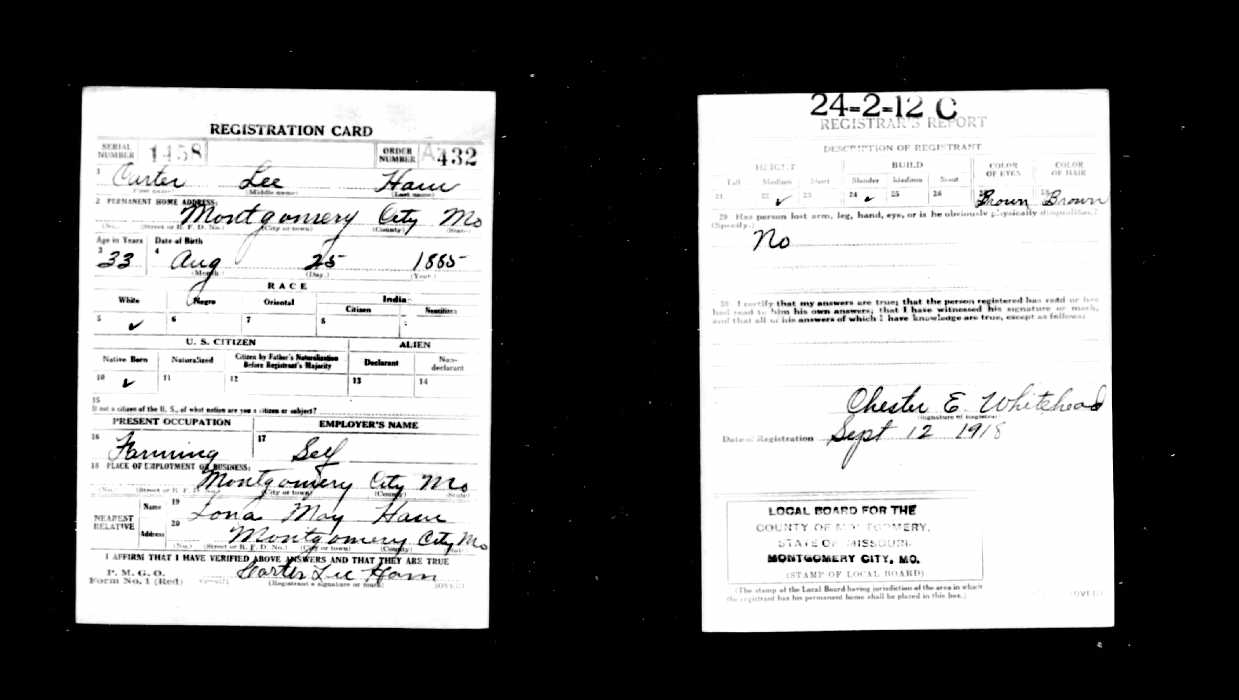 REGISTRATION CARD
SERIAL NUMBER 1458 ORDER NUMBER A432
1 Carter Lee Ham
(First name) (Middle name) (Last name)
2 PERMANENT HOME ADDRESS:
Montgomery City Mo
(No.) (Street or R. F. D. No.) (City or town) (County) (State)
Age in Years Date of Birth
3 33 4 Aug 25 1885
(Month) (Day) (Year)
RACE
White Negro Oriental Indian
Citizen Noncitizen
5 ✓ 6 7 8
U. S. CITIZEN ALIEN
Native Born Naturalized Citizen by Father's Naturalization Before Registrant's Majority Declarant Non-declarant
10 ✓ 11 12 13 14
15
If not a citizen of the U. S., of what nation are you a citizen or subject?
PRESENT OCCUPATION EMPLOYER'S NAME
16 Farming 17 Self
18 PLACE OF EMPLOYMENT OR BUSINESS:
Montgomery City Mo
(No.) (Street or R. F. D. No.) (City or town) (County) (State)
NEAREST RELATIVE Name 19 Lona May Ham
Address 20 Montgomery City Mo
(No.) (Street or R. F. D. No.) (City or town) (County) (State)
I AFFIRM THAT I HAVE VERIFIED ABOVE ANSWERS AND THAT THEY ARE TRUE
P. M. G. O.
Form No. 1 (Red) Carter Lee Ham
(Registrant's signature or mark) (OVER)
24-2-12 C
REGISTRAR'S REPORT
DESCRIPTION OF REGISTRANT
HEIGHT BUILD COLOR OF EYES COLOR OF HAIR
Tall Medium Short Slender Medium Stout
21 22 ✓ 23 24 ✓ 25 26 Brown Brown
29 Has person lost arm, leg, hand, eye, or is he obviously physically disqualified?
(Specify.)
No
30 I certify that my answers are true; that the person registered has read or has
had read to him his own answers; that I have witnessed his signature or mark,
and that all of his answers of which I have knowledge are true, except as follows:
Chester E. Whitehead
(Signature of Registrar)
Date of Registration Sept 12 1918
LOCAL BOARD FOR THE
COUNTY OF MONTGOMERY,
STATE OF MISSOURI
MONTGOMERY CITY, MO.
(STAMP OF LOCAL BOARD)
(The stamp of the Local Board having jurisdiction of the area in which
the registrant has his permanent home shall be placed in this box.) (OVER)